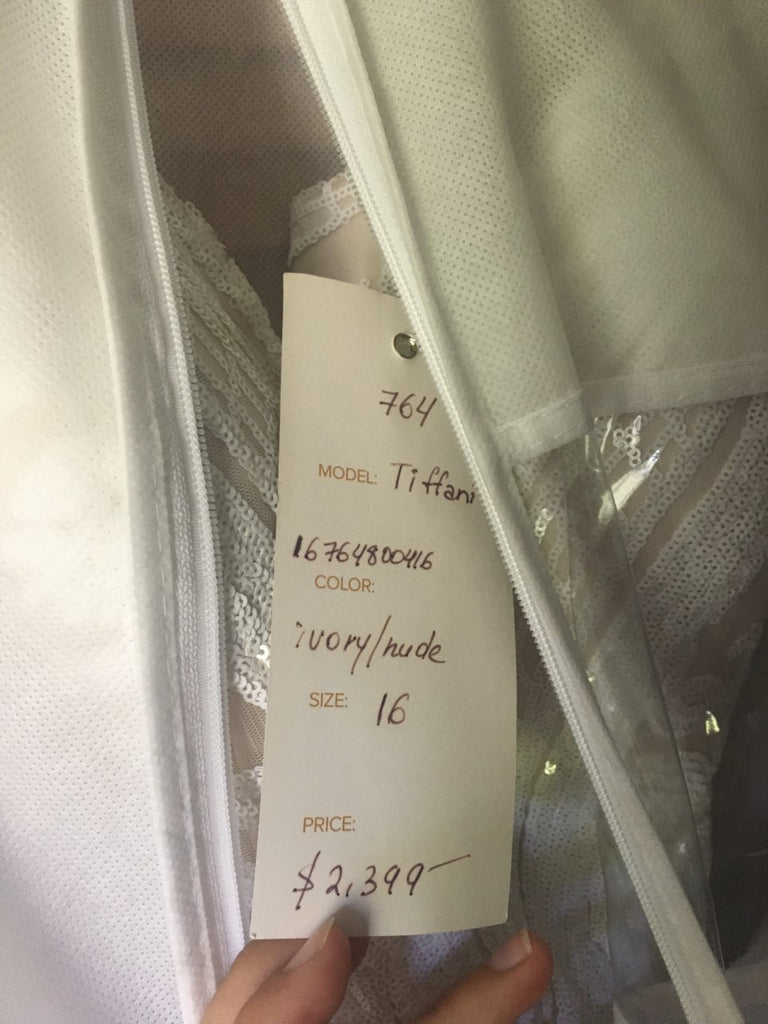 764
MODEL: Tiffani
16764800416
COLOR:
ivory/nude
SIZE: 16
PRICE:
$2,399-